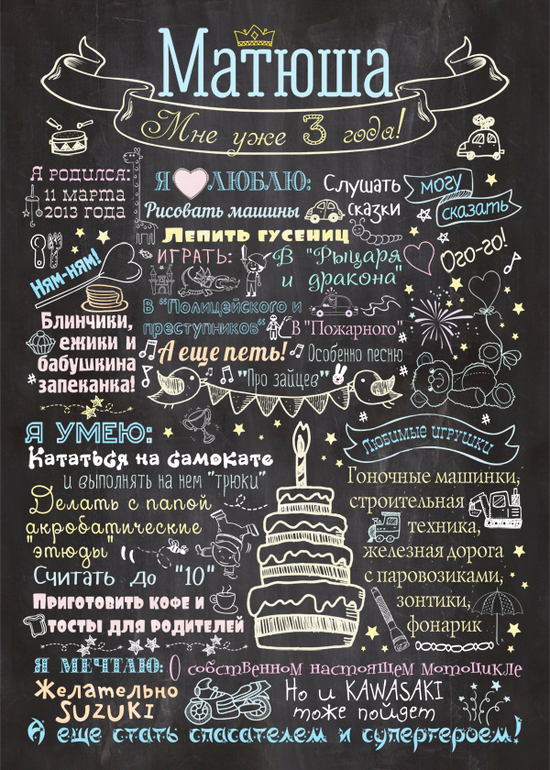 Матюша
Мне уже 3 года!
Я родился:
11 марта
2013 года
Я ЛЮБЛЮ:
Слушать
сказки
Рисовать машины
Лепить гусениц
ИГРАТЬ:
В "Рыцаря
и дракона"
В "Полицейского и
преступников"
В "Пожарного"
А еще петь!
Особенно песню
"Про зайцев"
могу
сказать
Ого-го!
Ням-ням!
Блинчики,
ежики и
бабушкина
запеканка!
Я УМЕЮ:
Кататься на самокате
и выполнять на нем "трюки"
Делать с папой
акробатические
"этюды"
Считать до "10"
Приготовить кофе и
тосты для родителей
Любимые игрушки
Гоночные машинки,
строительная
техника,
железная дорога
с паровозиками,
зонтики,
фонарик
Я МЕЧТАЮ: О собственном настоящем мотоцикле
Желательно
SUZUKI
Но и KAWASAKI
тоже пойдет
А еще стать спасателем и супергероем!